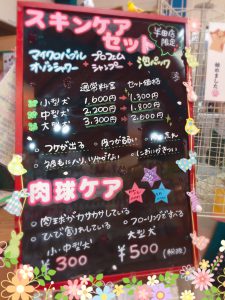 スキンケア
セット
半田店
限定
マイクロバブル
オゾンシャワー + プロフェム
シャンプー + 泡パック
通常料金 セット価格
小型犬 1,600円→1,300円
中型犬 2,200円→1,800円
大型犬 3,300円→2,600円
○フケが出る ○肉球ケア
○毛にハリ、ツヤがない ○においがきつい
肉球ケア
○肉球がカサカサしている
○ひび割れしている
○フローリングですべる
小・中型犬 大型犬
¥300 ¥500 (税抜)
始めました